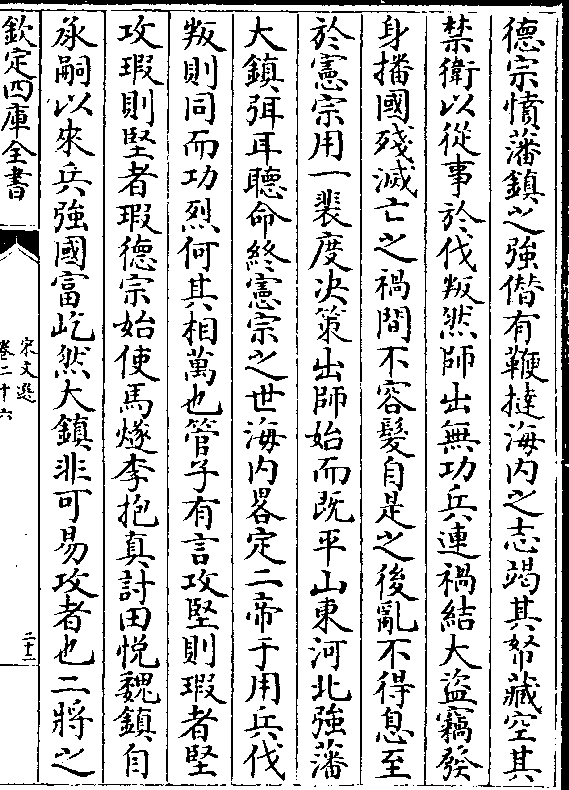 德宗憤藩鎮之強僣有鞭撻海内之志竭其帑藏空其
禁衛以從事於伐叛然師出無功兵連禍結大盜竊發
身播國殘滅亡之禍間不容髮自是之後亂不得息至
於憲宗用一裴度决策出師始而既平山東河北強藩
大鎮弭耳聽命終憲宗之世海内畧定二帝于用兵伐
叛則同而功烈何其相萬也管子有言攻堅則瑕者堅
攻瑕則堅者瑕德宗始使馬燧李抱真討田悦魏鎮自
承嗣以來兵強國富屹然大鎮非可易攻者也二將之
欽定四庫全書
宋文選
卷二十六
二十二